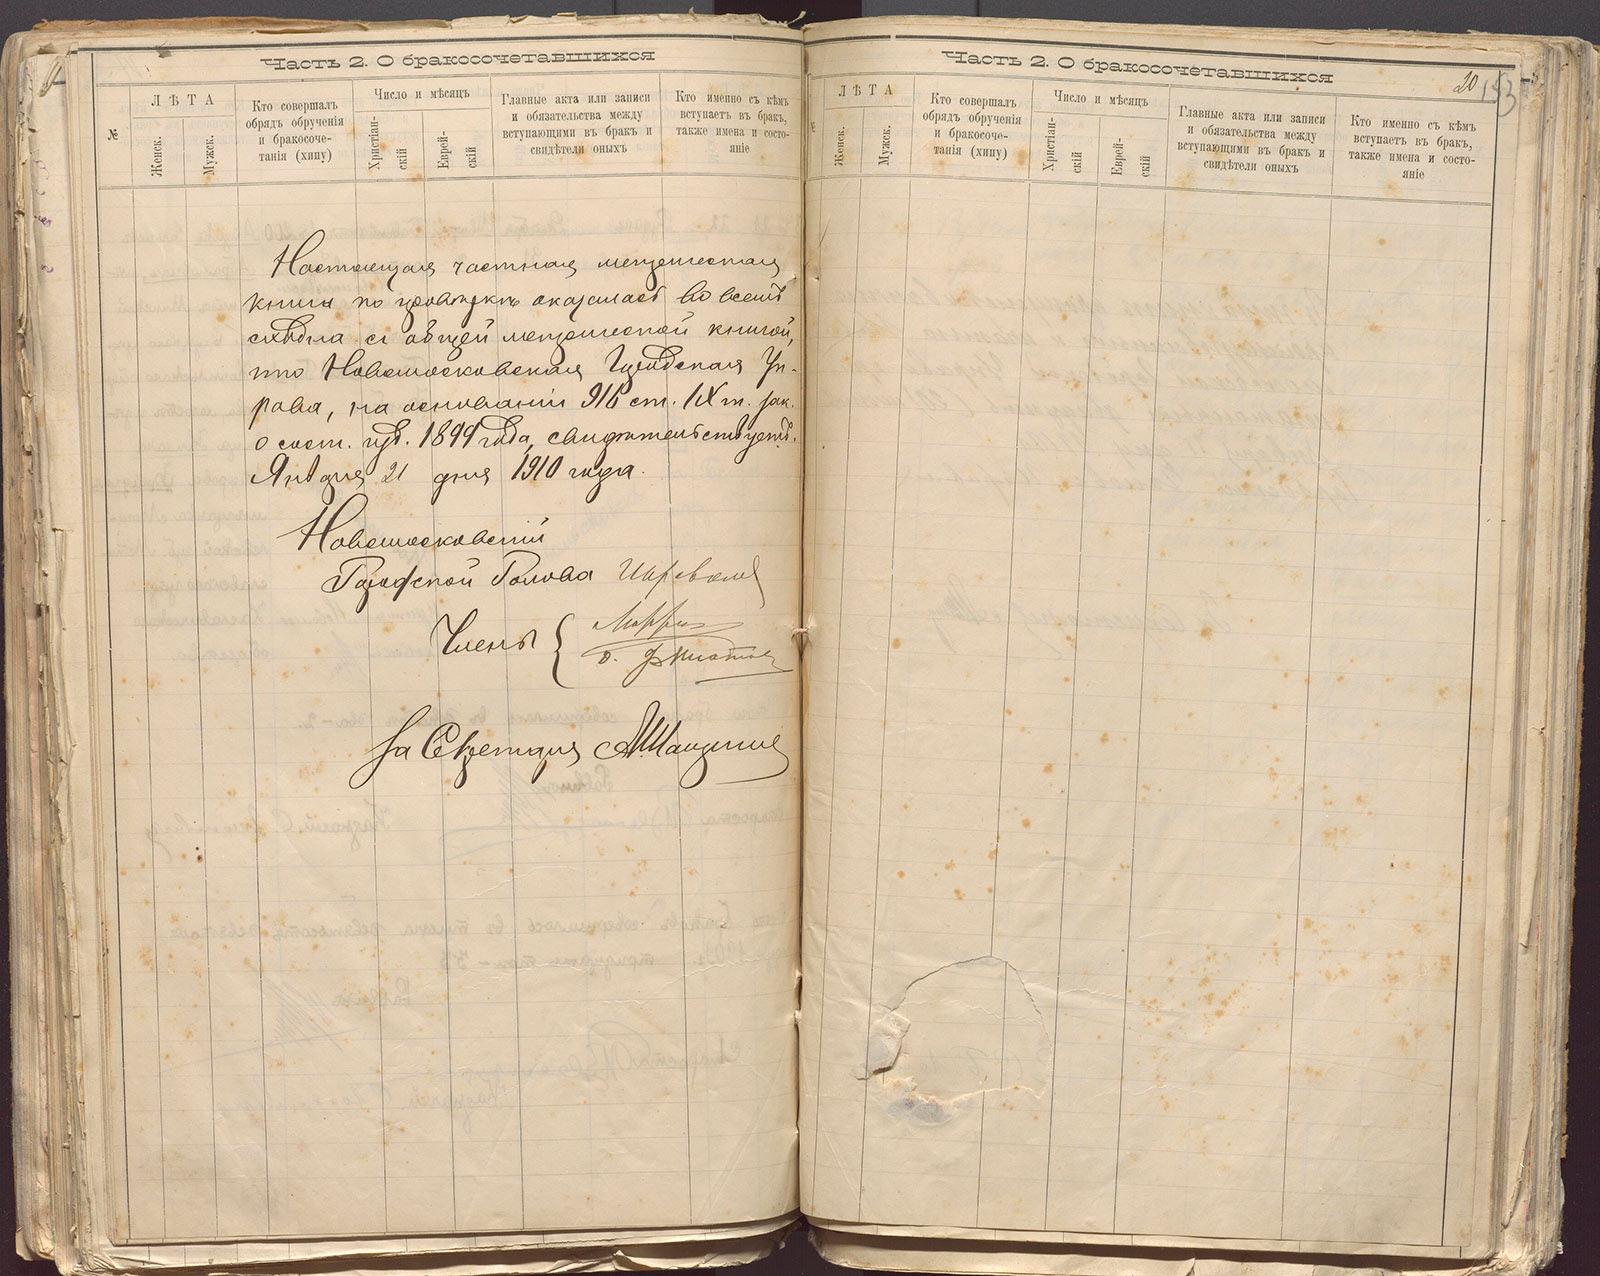 Часть 2. О бракосочетавшихся
№
ЛѢТА
Женск.
Мужск.
Кто совершалъ
обрядъ обрученія
и бракосоче-
танія (хипу)
Число и мѣсяцъ
Христіан-
скій
Еврей-
скій
Главные акта или записи
и обязательства между
вступающими въ бракъ и
свидѣтели оныхъ
Кто именно съ кѣмъ
вступаетъ въ бракъ,
также имена и состо-
яніе
Настоящая частная метрическая
книга по провѣркѣ оказалась во всемъ
сходна съ общей метрической книгой,
что Новомосковская Городская Уп-
рава, на основаніи 916 ст. IX т. зак.
о сост. изд. 1899 года, свидѣтельствуетъ.
Января 21 дня 1910 года.
Новомосковскій
Городской Голова
Члены
За Секретаря
Часть 2. О бракосочетавшихся
20
153
ЛѢТА
Женск.
Мужск.
Кто совершалъ
обрядъ обрученія
и бракосоче-
танія (хипу)
Число и мѣсяцъ
Христіан-
скій
Еврей-
скій
Главные акта или записи
и обязательства между
вступающими въ бракъ и
свидѣтели оныхъ
Кто именно съ кѣмъ
вступаетъ въ бракъ,
также имена и состо-
яніе